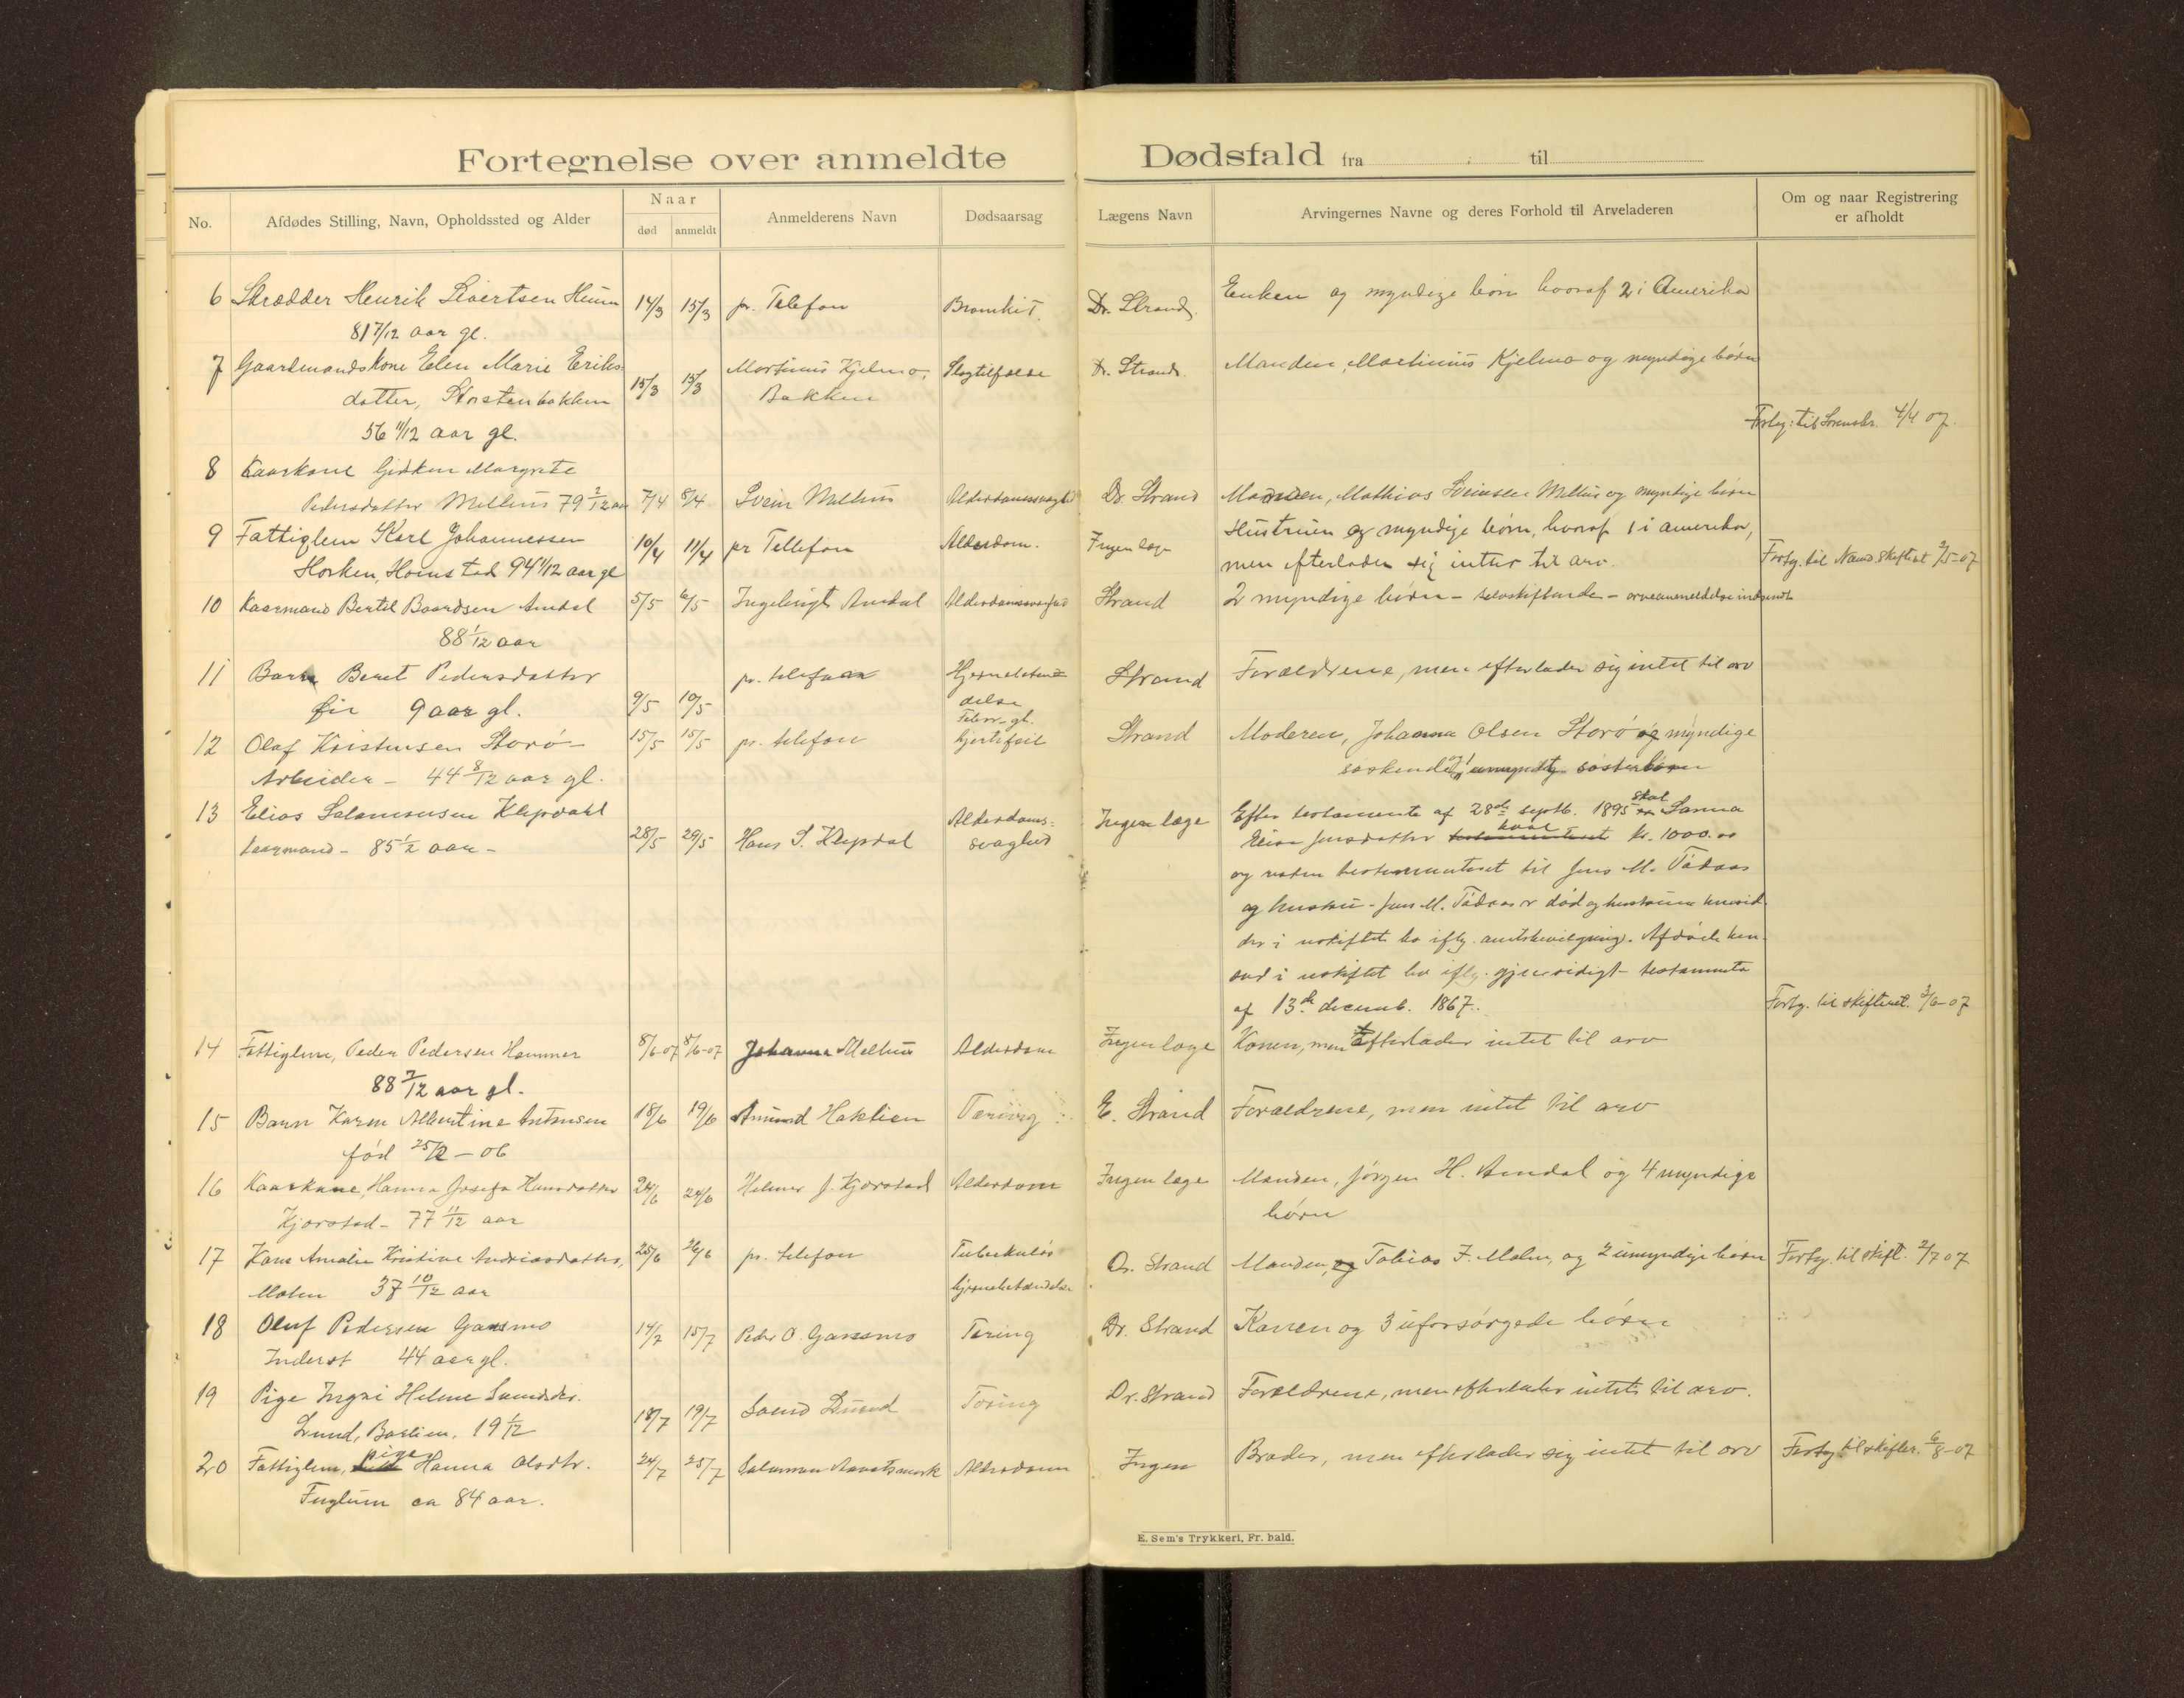 Fortegnelse over anmeldte Dødsfald fra til
No. Afdødes Stilling, Navn, Opholdssted og Alder Naar død anmeldt Anmelderens Navn Dødsaarsag Lægens Navn Arvingernes Navne og deres Forhold til Arveladeren Om og naar Registrering er afholdt
6 Skrædder Henrik Sivertsen 14/3 15/3 pr. Telefon Bronkit. Dr. Strand. Enken og myndige børn hvoraf 2 i Amerika
81 7/12 aar gl.
7 Gaardmandskone Elen Marie Eriks 15/3 15/3 Martinus Kjelmo, Slagtilfælde Dr. Strand. Manden, Martinius Kjelmo og myndige børn
datter, Bakken
56 11/12 aar gl. Forteg: til Sorenskr. 4/4 07.
8 Kaarkone Margrete
Pedersdatter Melhus 79 2/12 aar 7/4 8/4 Svein Melhus Alderdomssvaghed Dr. Strand Manden, Mathias Sveinsen Melhus og myndige børn
9 Fattiglem Karl Johannessen 10/4 11/4 pr Tellefon Alderdom. Ingen læge Hustruen og myndige børn, hvoraf 1 i amerika,
Horken, Homstad 94 11/12 aar gl men efterlader sig intet til arv. Forteg. til Namd. skifteret 2/5-07
10 Kaarmand Bertil Baardsen Amdal 5/5 6/5 Ingebrigt Amdal Strand 2 myndige børn - selvskiftende - arveanmeldelse indsendt
88 1/12 aar
11 Barn Beret Pedersdatter pr. telefon Strand Forældrene, men efterlader sig intet til arv
9 aar gl. 9/5 10/5
12 Olaf Kristensen Storø - 15/5 15/5 pr. telefon hjertefeil Strand Moderen, Johanna Olsen Storø og myndige
Arbeider - 44 8/12 aar gl. søskende umyndig søsterbørn
13 Elias Salamonsen Klepdahl 28/5 29/5 Hans S. Klepdal Alderdoms- Ingen læge Efter testamente af 28de septb. 1895 skal Sanna
kaarmand - 85 1/2 aar - svaghed Jensdatter have testamenteret kr. 1000.00
og resten testamenteret til Jens M. Tødaas
og hustru - Jens M. Tødaas er død og hustruen hensid
der i uskiftet bo iflg. amtsbevilgning. Afdøde hen-
sad i uskiftet bo iflg. gjensidigt testamente
af 13de decemb. 1867. Forteg. til skifteret. 3/6-07
14 Fattiglem, Peder Pedersen Hammer 8/6-07 8/6-07 Johanna Melhus Alderdom Ingen læge Konen, men efterlader intet til arv
88 7/12 aar gl.
15 Barn Karen Albertine Antonsen 18/6 19/6 Amund Haklien Tæring E. Strand Forældrene, men intet til arv
fød 25/12 - 06
16 Kaarkone, Hanna Josefa Hansdatter 24/6 24/6 Helmer J. Kjørstad Alderdom Ingen læge Manden, Jørgen H. Amdal og 4 myndige
Kjørstad - 77 11/12 aar børn
17 Kone Amalie Kristine Andreasdatter, 25/6 26/6 pr. telefon Tuberkuløs Dr. Strand Manden, og Tobias J. Malm, og 2 umyndige børn Forteg. til skift. 2/7 07
Malm 37 10/12 aar hjernebetændelse
18 Oluf Pedersen Gansmo 14/7 15/7 Peder O. Gansmo Tæring Dr. Strand Konen og 3 uforsørgede børn
Inderst 44 aar gl.
19 Pige Helene 18/7 19/7 Lund Tæring Dr. Strand Forældrene, men efterlader intet til arv.
Lund, 19 1/12
20 Fattiglem, pige Hanna Olsdtr. 24/7 25/7 Salamon Alderdom Ingen Broder, men efterlader sig intet til arv Forteg. til skifter. 6/8-07
Fuglum ca 84 aar.
E. Sem's Trykkeri, Fr. hald.